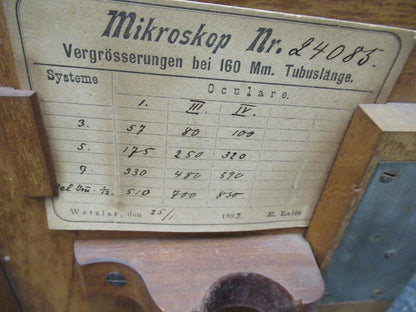 Mikroskop Nr. 24085.
Vergrösserungen bei 160 Mm. Tubuslänge.
Systeme Oculare.
I. III. IV.
3. 57 80 100
5. 175 250 320
7. 330 480 590
Oel Im. 1/12 510 700 850
Wetzlar, den 25/1 1893. E. Leitz